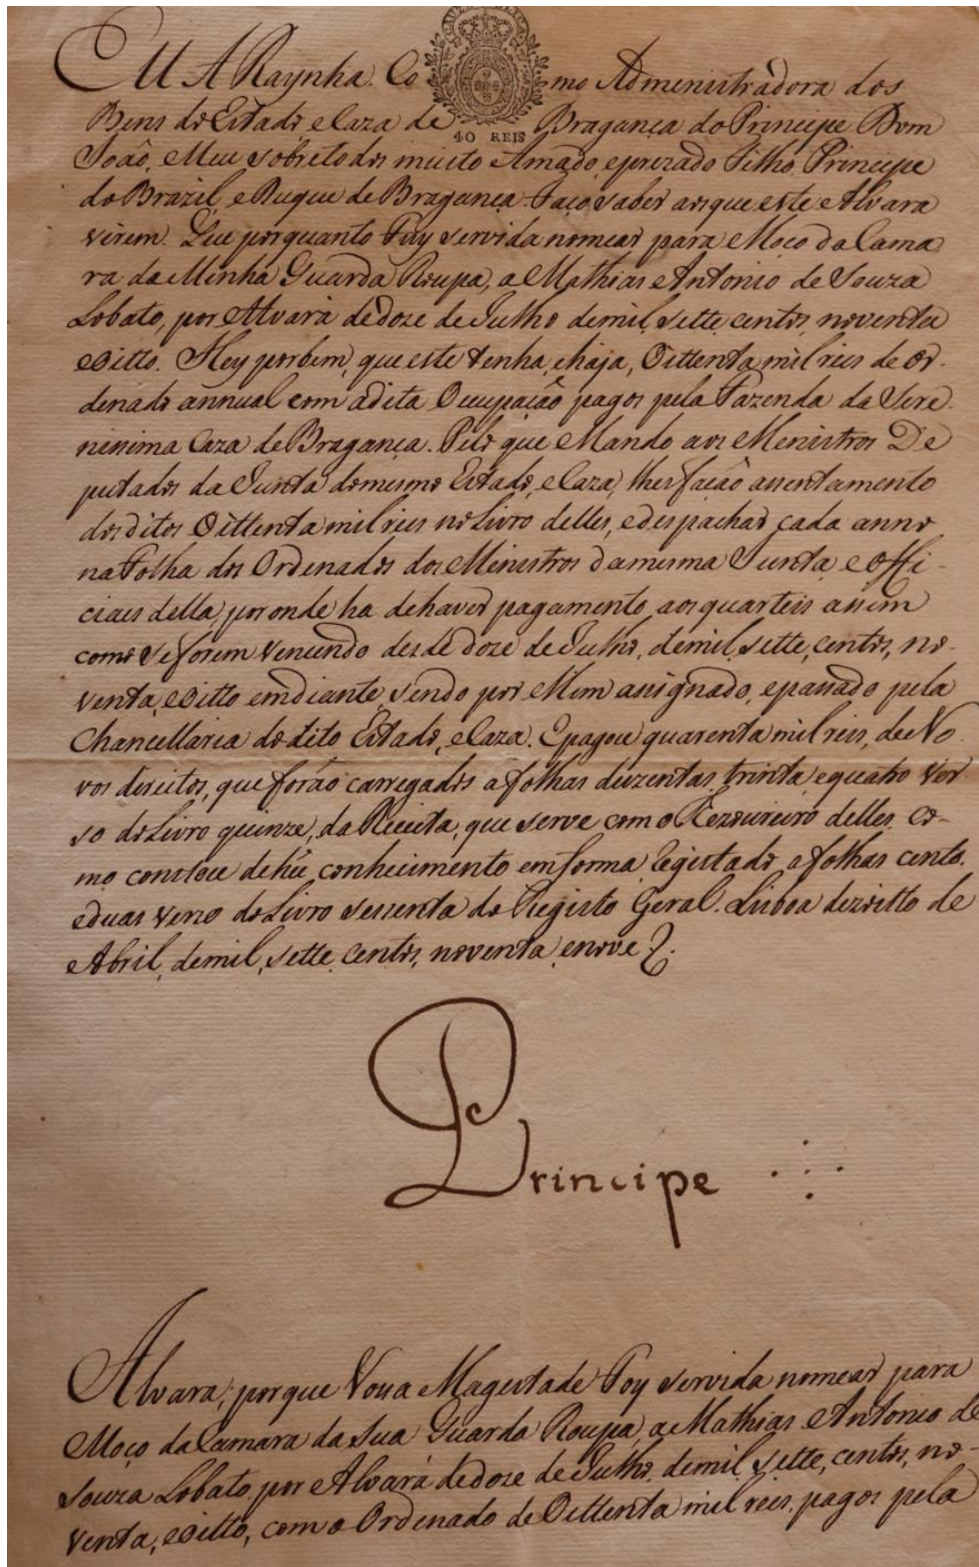 EU A Raynha. Co mo Administradora dos
40 REIS
Bens do Estado e Caza de Bragança do Principe Dom
João, Meu sobretodos muito Amado, e prezado Filho, Principe
do Brazil, e Duque de Bragança Faço saber aos que este Alvara
virem. Que porquanto Fuy servida nomear para Moço da Cama
ra da Minha Guarda Roupa, a Mathias Antonio de Souza
Lobato, por Alvará de doze de Julho de mil, sette centos, noventa
e oitto. Hey por bem, que este tenha, e haja, Oittenta mil reis de Or-
denado annual com a dita Occupação pagos pela Fazenda da Sere
nissima Caza de Bragança. Pelo que Mando aos Menistros De
putados da Junta do mesmo Estado, e Caza, lhes fação assentamento
dos ditos Oittenta mil reis no Livro delles, e despachar cada anno
na Folha dos Ordenados dos Menistros da mesma Junta e Offi-
ciaes della, por onde ha de haver pagamento aos quarteis assim
como se forem vencendo desde doze de Julho, de mil, sette, centos, no-
venta, e oitto em diante, sendo por Mim assignado, e passado pela
Chancellaria do dito Estado, e Caza. E pagou quarenta mil reis, de No
vos direitos, que forão carregados a folhas duzentas, trinta, e quatro ver-
so do Livro quinze, da Receita, que serve com o Thezoureiro delles, co-
mo constou de hũ conhecimento em forma registado a folhas cento,
e duas verso do Livro sessenta do Registo Geral. Lisboa dezoitto de
Abril, de mil, sette, centos, noventa, e nove
Principe
Alvara, porque Vossa Magestade Foy servida nomear para
Moço da Camara da Sua Guarda Roupa, a Mathias Antonio de
Souza Lobato, por Alvará de doze de Julho, de mil, sette, centos, no-
venta, e oitto, com o Ordenado de Oittenta mil reis, pagos pela